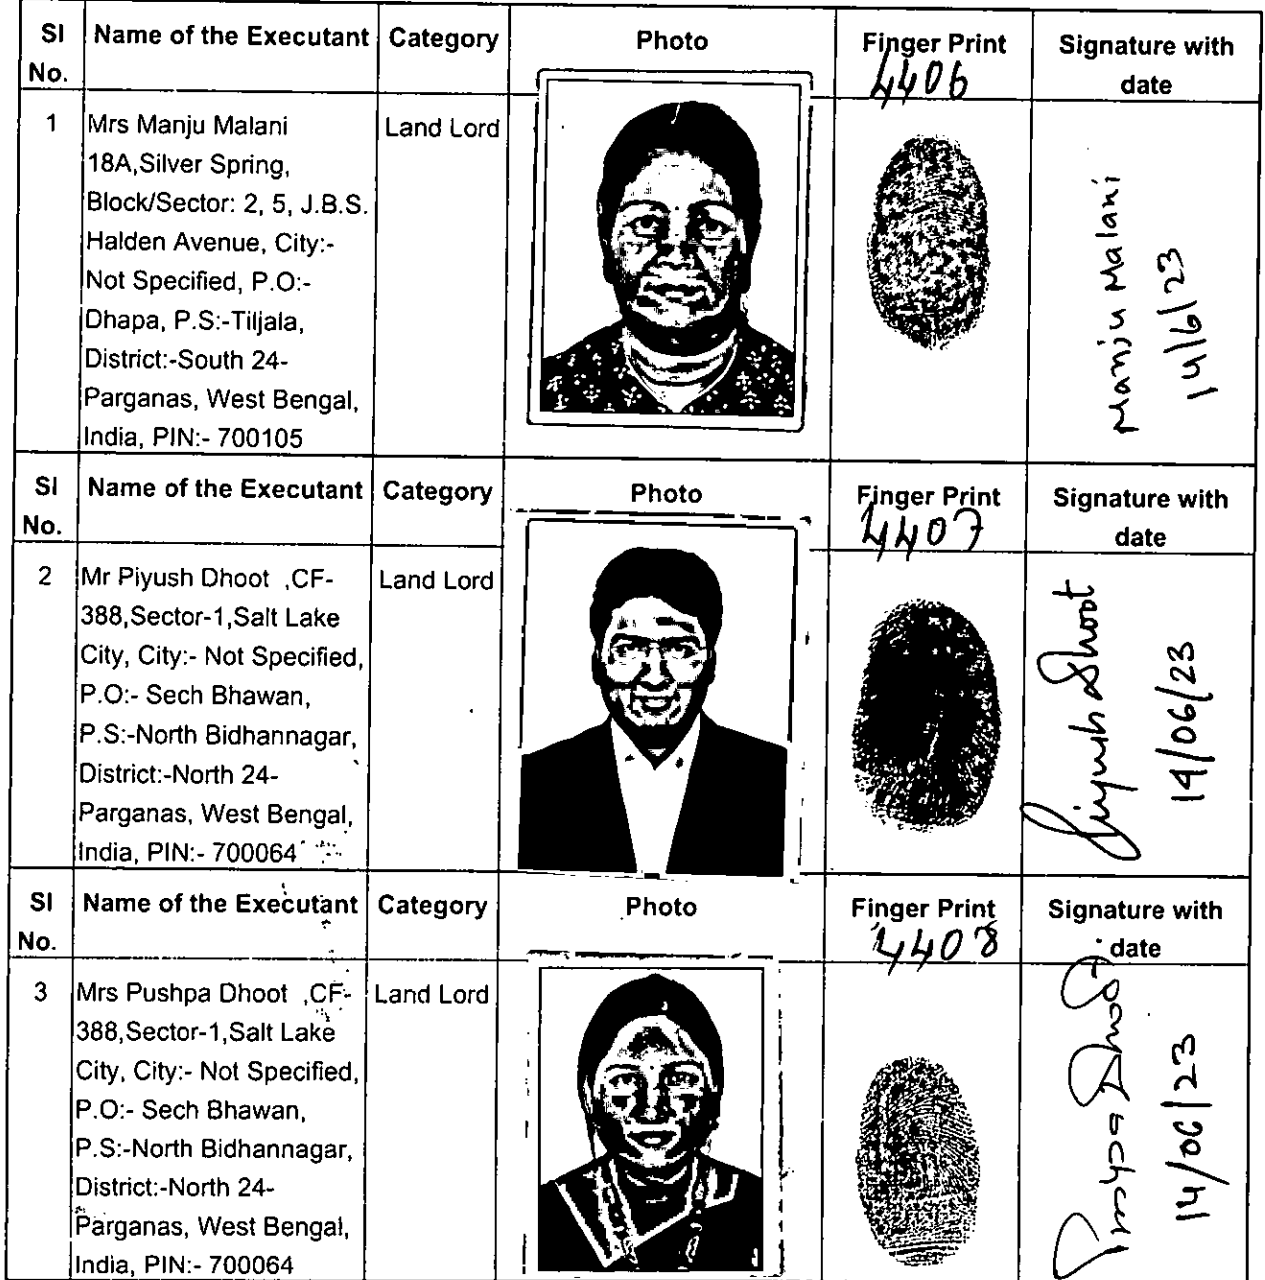 Sl Name of the Executant Category Photo Finger Print Signature with
No. 4406 date
1 Mrs Manju Malani Land Lord
18A,Silver Spring,
Block/Sector: 2, 5, J.B.S.
Halden Avenue, City:-
Not Specified, P.O:-
Dhapa, P.S:-Tiljala,
District:-South 24-
Parganas, West Bengal,
India, PIN:- 700105
Manju Malani
14/6/23
Sl Name of the Executant Category Photo Finger Print Signature with
No. 4407 date
2 Mr Piyush Dhoot ,CF- Land Lord
388,Sector-1,Salt Lake
City, City:- Not Specified,
P.O:- Sech Bhawan,
P.S:-North Bidhannagar,
District:-North 24-
Parganas, West Bengal,
India, PIN:- 700064
Piyush Dhoot
14/06/23
Sl Name of the Executant Category Photo Finger Print Signature with
No. 4408 date
3 Mrs Pushpa Dhoot ,CF- Land Lord
388,Sector-1,Salt Lake
City, City:- Not Specified,
P.O:- Sech Bhawan,
P.S:-North Bidhannagar,
District:-North 24-
Parganas, West Bengal,
India, PIN:- 700064
Pushpa Dhoot
14/06/23